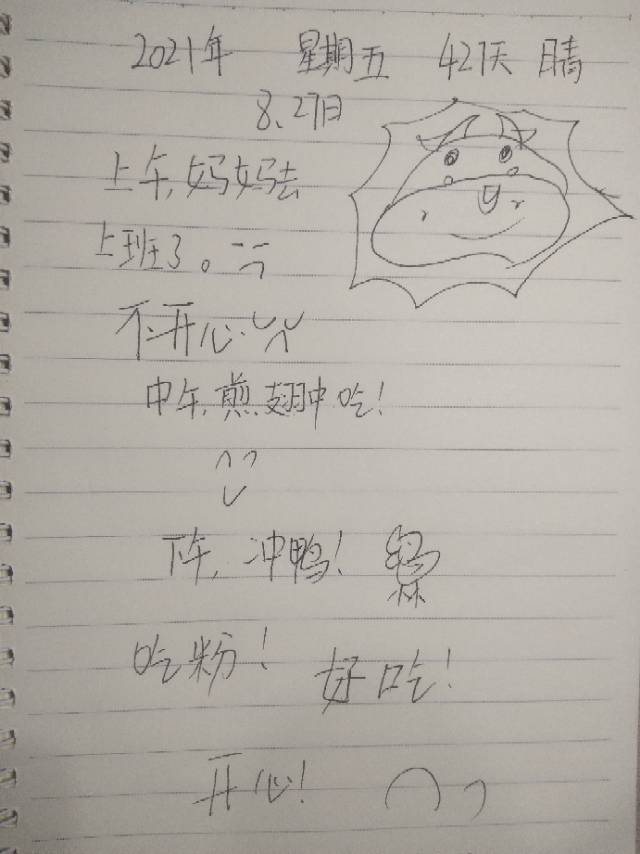 2021年 星期五 42天 晴
8、27日
上午,妈妈去
上班了。
不开心、
中午,煎翅中吃!
下午,冲鸭!
吃粉! 好吃!
开心!